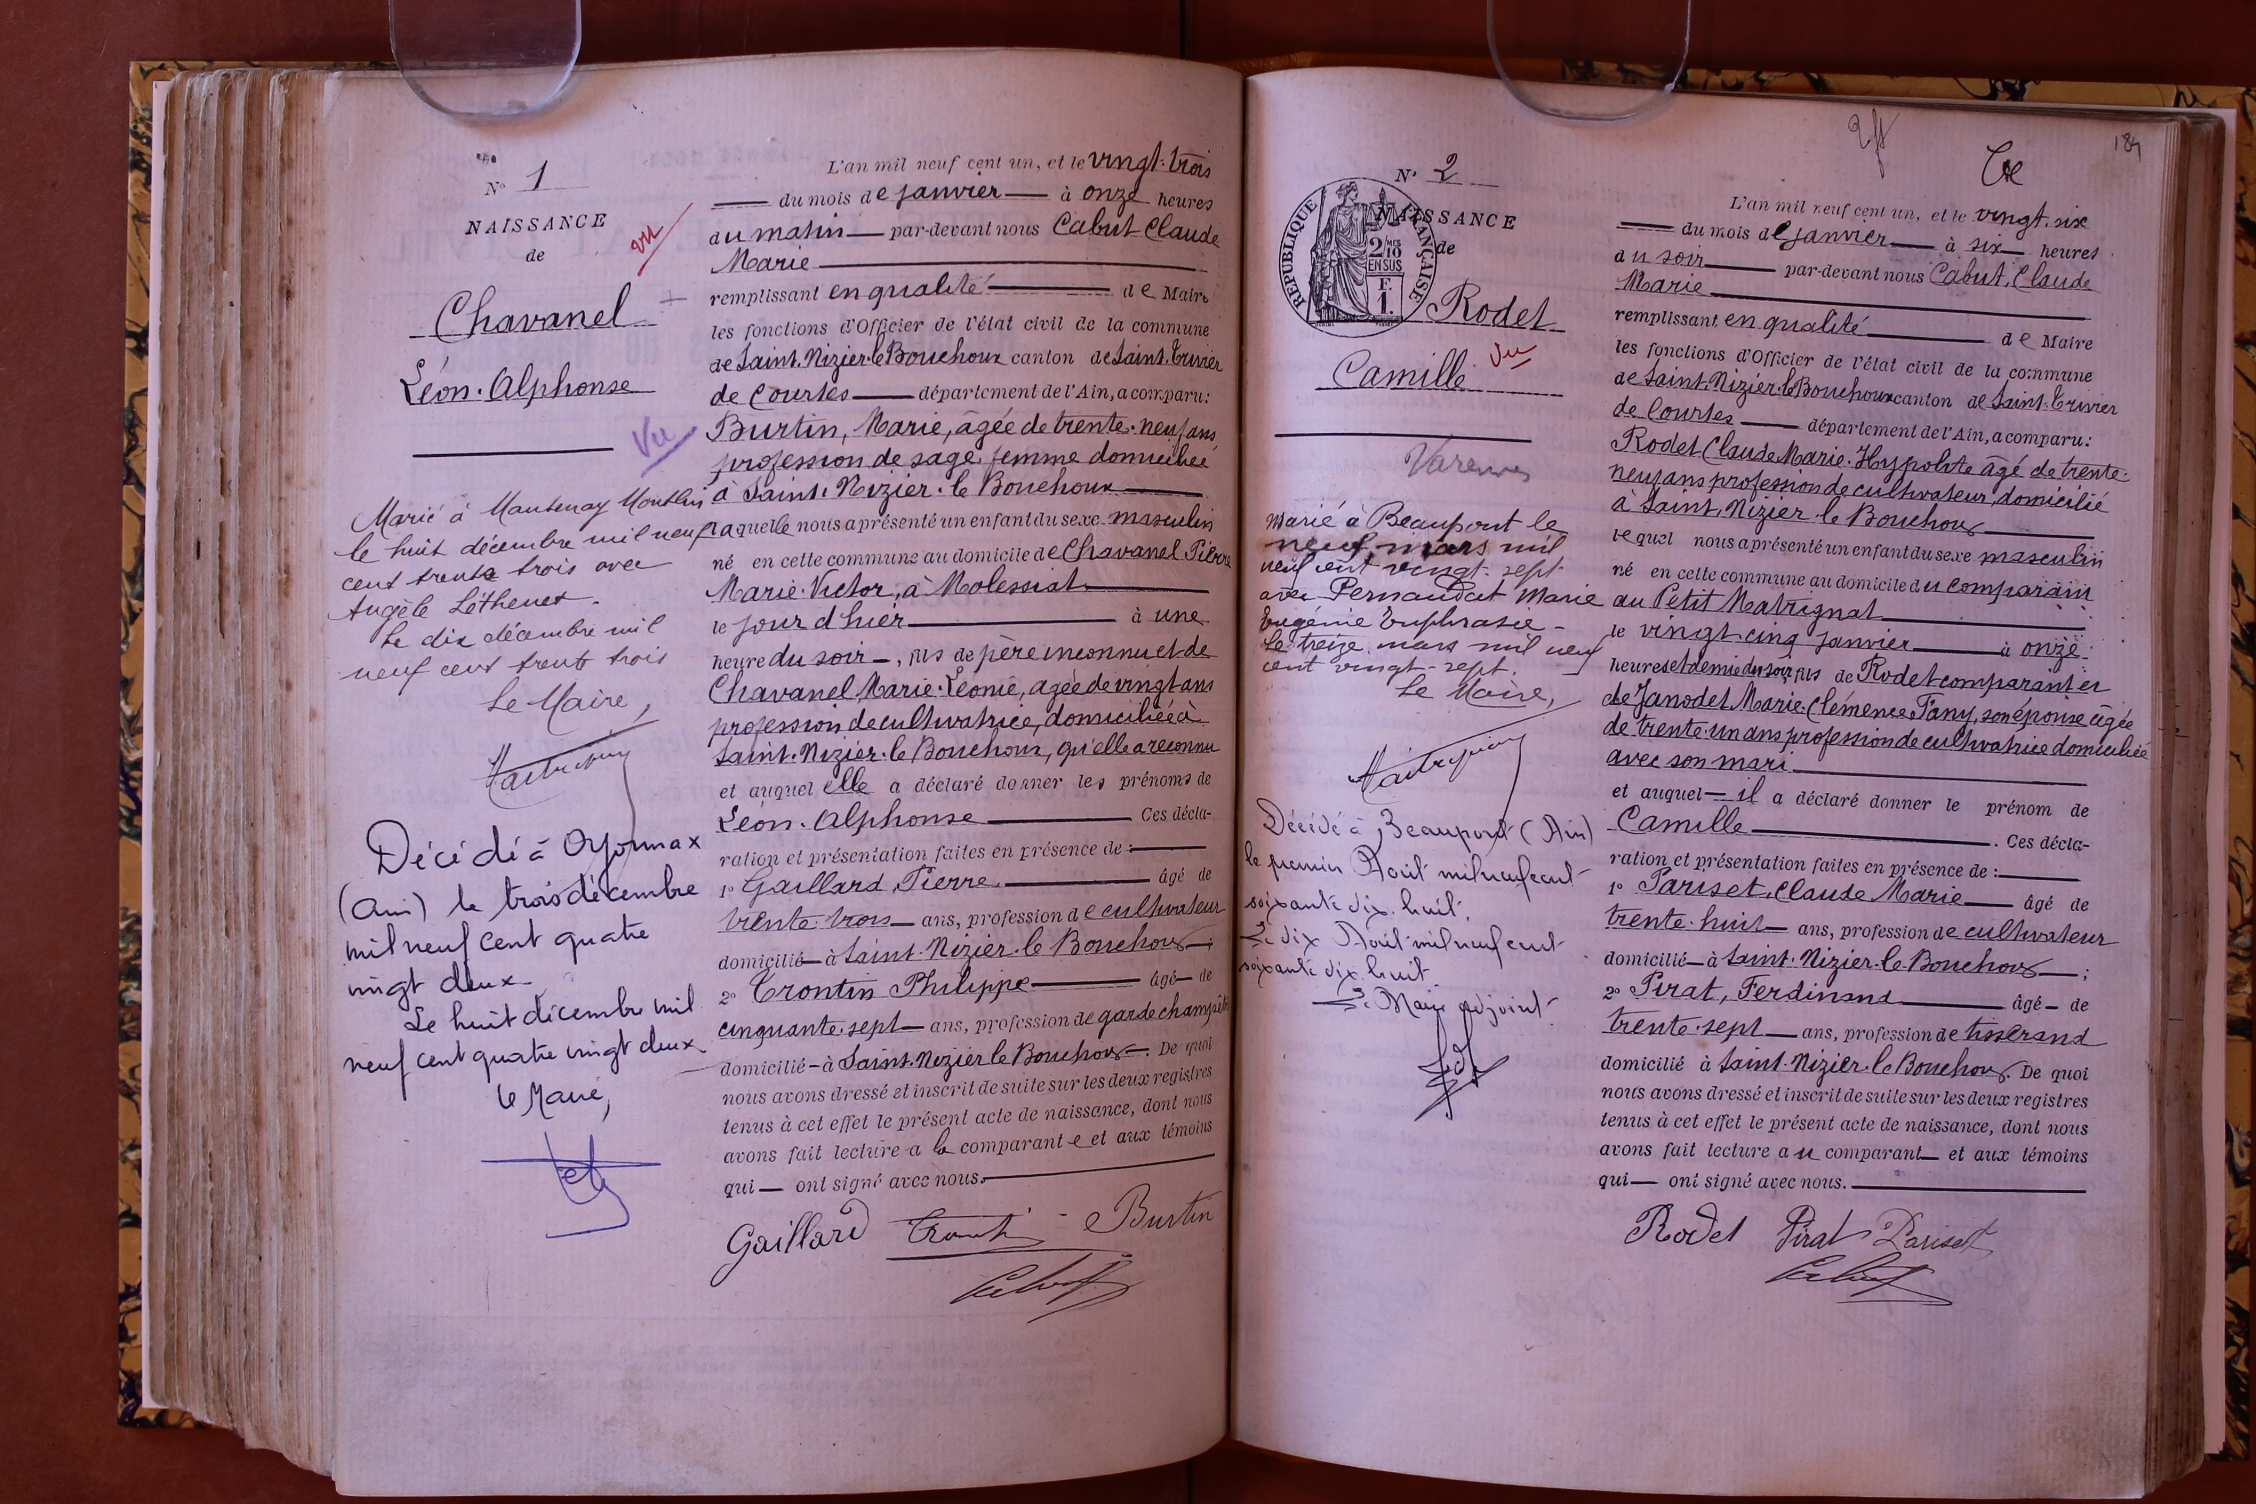 N° 1
NAISSANCE
de
Chavanel
Léon. Alphonse
vu
Vu
Marié à Mantenay Montlin
le huit décembre mil neuf
cent trente trois avec
Angèle Léthenet.
Le dix décembre mil
neuf cent trente trois
Le Maire,
Décédé à Oyonnax
(Ain) le trois décembre
mil neuf cent quatre
vingt deux
Le huit décembre mil
neuf cent quatre vingt deux
Le Maire,
L'an mil neuf cent un, et le vingt. trois
du mois de janvier à onze heures
du matin par-devant nous Cabut Claude
Marie
remplissant en qualité de Maire
les fonctions d'Officier de l'état civil de la commune
de Saint. Nizier. le Bouchoux canton de Saint. Trivier
de Courtes département de l'Ain, a comparu:
Burtin, Marie, âgée de trente. neuf ans,
profession de sage femme domiciliée
à Saint. Nizier. le Bouchoux
laquelle nous a présenté un enfant du sexe masculin
né en cette commune au domicile de Chavanel Pierre
Marie. Victor, à Molessiat
le jour d'hier à une
heure du soir, fils de père inconnu et de
Chavanel Marie. Léonie, âgée de vingt ans
profession de cultivatrice, domiciliée à
Saint. Nizier. le Bouchoux, qu'elle a reconnu
et auquel elle a déclaré donner les prénoms de
Léon. Alphonse Ces décla-
ration et présentation faites en présence de :
1° Gaillard, Pierre, âgé de
trente. trois ans, profession de cultivateur
domicilié à Saint. Nizier. le Bouchoux ;
2° Trontin Philippe âgé de
cinquante. sept ans, profession de garde champêtre
domicilié à Saint. Nizier le Bouchoux. De quoi
nous avons dressé et inscrit de suite sur les deux registres
tenus à cet effet le présent acte de naissance, dont nous
avons fait lecture a la comparante et aux témoins
qui ont signé avec nous.
Gaillard Trontin Burtin
Cabut
184
N° 2
NAISSANCE
de
REPUBLIQUE FRANÇAISE
2/10 MES
EN SUS
F.
1.
Rodet
Camille
Vu
Varennes
Marié à Beaupont le
neuf mars mil
neuf cent vingt. sept
avec Pernaudat Marie
Eugénie Euphrasie -
Le treize mars mil neuf
cent vingt-sept.
Le Maire,
Décédé à Beaupont (Ain)
le premier Août mil neuf cent
soixante dix. huit.
Le dix Août mil neuf cent
soixante dix. huit
Le Maire adjoint.
L'an mil neuf cent un, et le vingt. six
du mois de janvier à six heures
du soir par-devant nous Cabut, Claude
Marie
remplissant en qualité de Maire
les fonctions d'Officier de l'état civil de la commune
de Saint. Nizier. le Bouchoux canton de Saint. Trivier
de Courtes département de l'Ain, a comparu:
Rodet Claude Marie. Hypolite âgé de trente.
neuf ans profession de cultivateur, domicilié
à Saint. Nizier. le Bouchoux
lequel nous a présenté un enfant du sexe masculin
né en cette commune au domicile du comparant
au Petit Matrignat
le vingt. cinq janvier à onze
heures et demie du soir, fils de Rodet comparant et
de Janodet Marie. Clémence Fany, son épouse âgée
de trente. un ans profession de cultivatrice domiciliée
avec son mari
et auquel il a déclaré donner le prénom de
Camille . Ces décla-
ration et présentation faites en présence de :
1° Pariset, Claude Marie âgé de
trente. huit ans, profession de cultivateur
domicilié à Saint. Nizier. le Bouchoux ;
2° Pirat, Ferdinand âgé de
trente. sept ans, profession de tisserand
domicilié à Saint. Nizier. le Bouchoux. De quoi
nous avons dressé et inscrit de suite sur les deux registres
tenus à cet effet le présent acte de naissance, dont nous
avons fait lecture au comparant et aux témoins
qui ont signé avec nous.
Rodet Pirat Pariset
Cabut